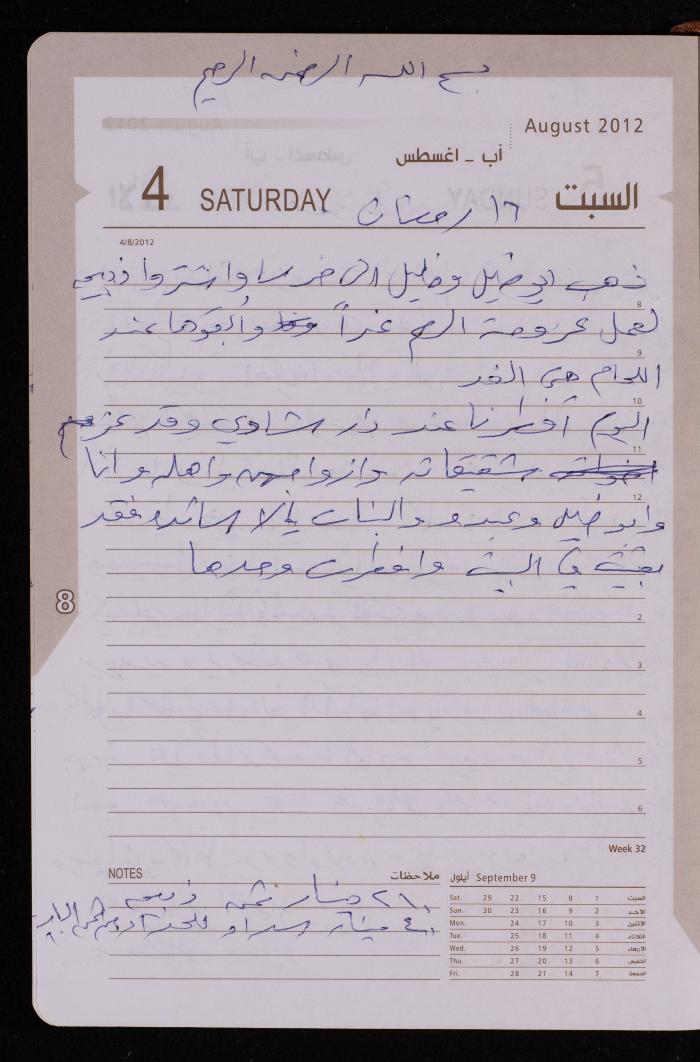 بسم الله الرحمن الرحيم
August 2012
آب - اغسطس
4 SATURDAY ١٦ رمضان السبت
4/8/2012
ذهب ابو خليل وخليل الى واشتروا ذبيحه
8
لعمل عزومة الرحم غداً وأبقوها عند
9
اللحام حتى الغد
10
اليوم أفطرنا عند دار شاوي وقد عزم
11
شقيقاته وازواجهن واهله وانا
12
وابو خليل وعبده والبنات الا فقد
بقيت في البيت وافطرت وحدها
8
2
3
4
5
6
Week 32
NOTES ملاحظات
٢٨٠ دينار ثمن ذبيحه
٤٠ دينار
أيلول September 9
Sat. 29 22 15 8 1 السبت
Sun. 30 23 16 9 2 الأحد
Mon. 24 17 10 3 الإثنين
Tue. 25 18 11 4 الثلاثاء
Wed. 26 19 12 5 الأربعاء
Thu. 27 20 13 6 الخميس
Fri. 28 21 14 7 الجمعة